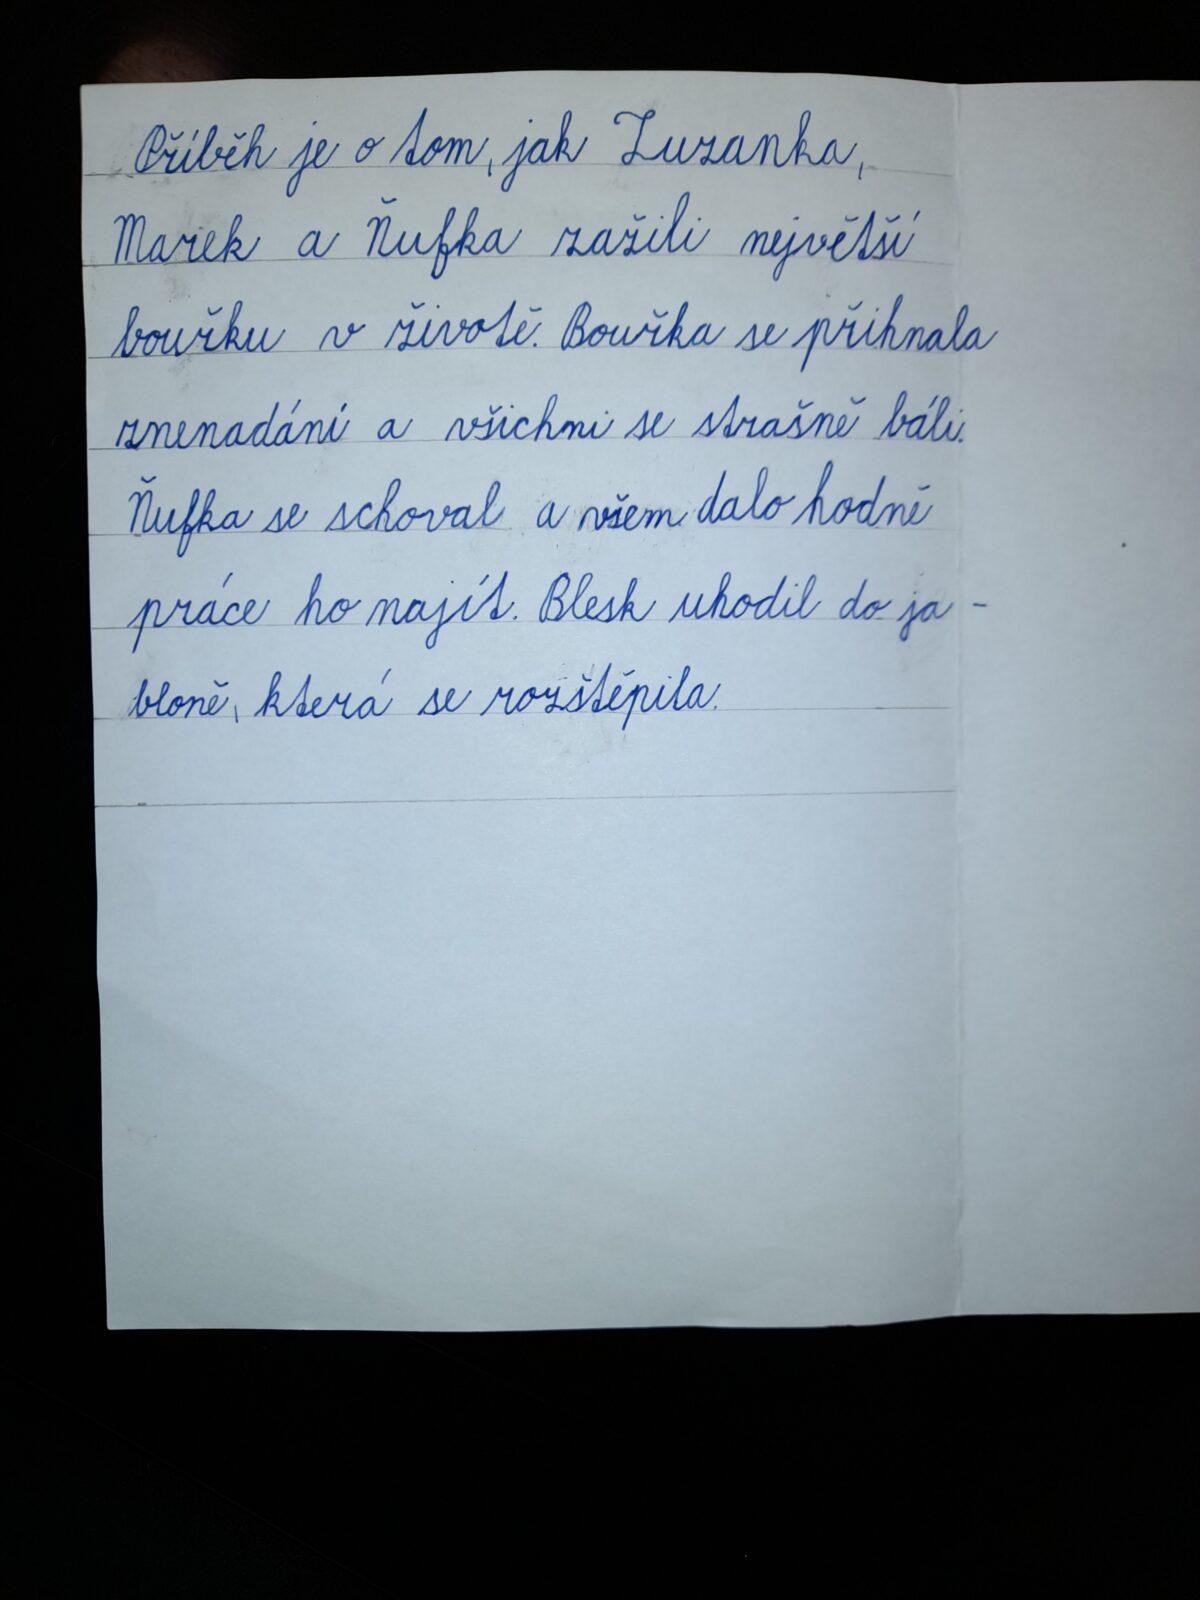 Příběh je o tom, jak Zuzanka,
Marek a Ňufka zažili největší
bouřku v životě. Bouřka se přihnala
znenadání a všichni se strašně báli.
Ňufka se schoval a všem dalo hodně
práce ho najít. Blesk uhodil do ja-
bloně, která se rozštěpila.